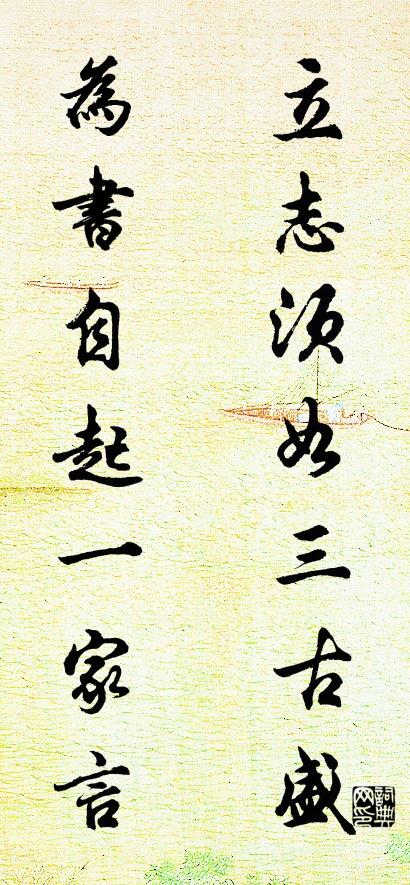 立志須如三古盛
為書自起一家言
詞典网印